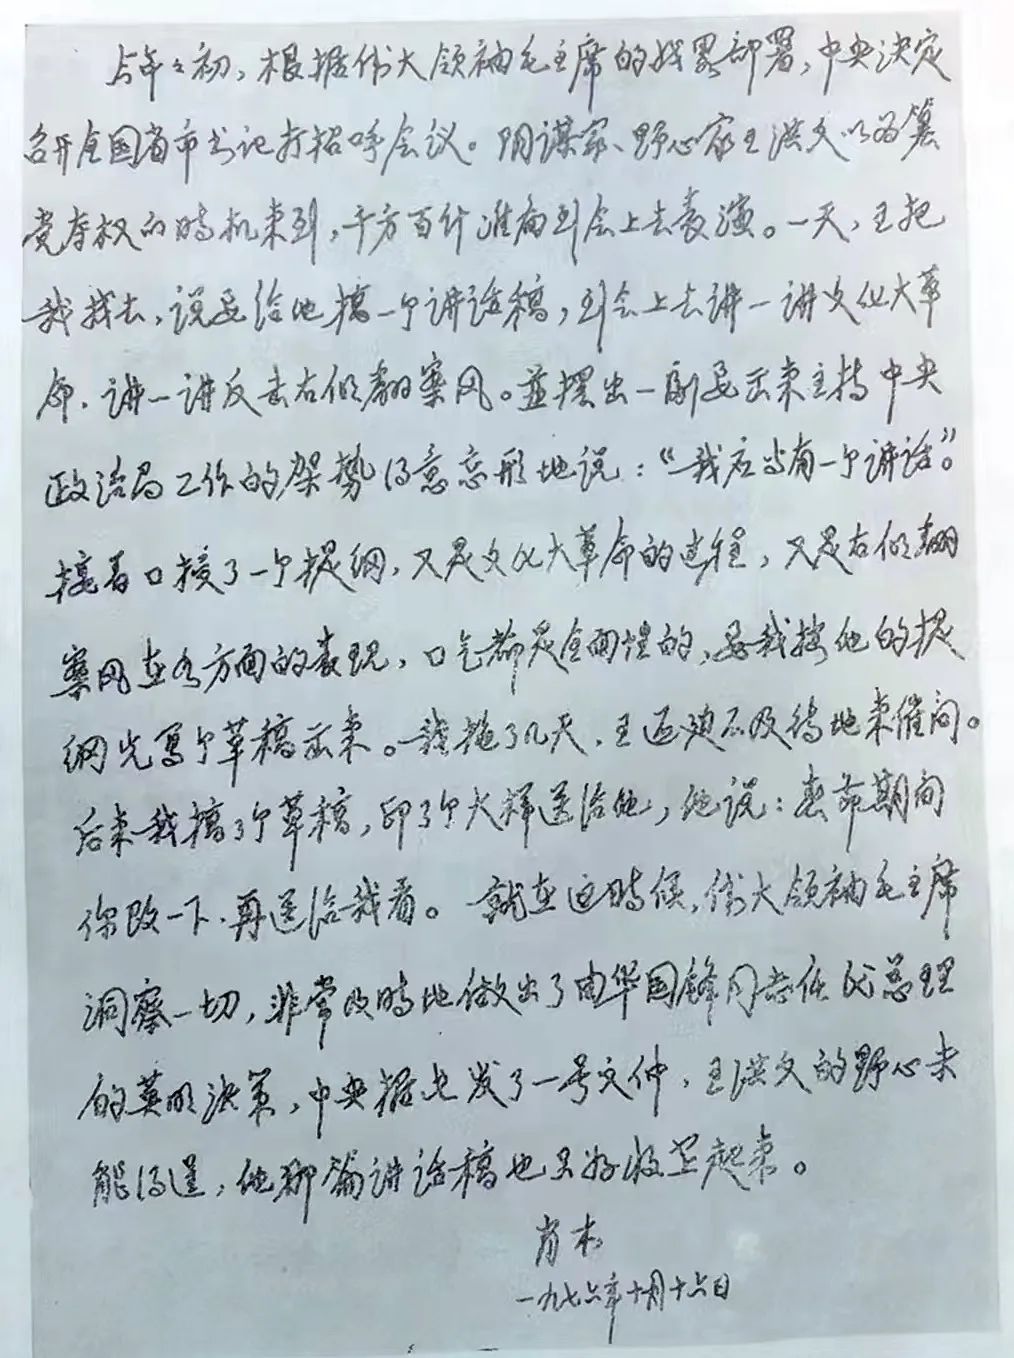 今年年初，根据伟大领袖毛主席的战略部署，中央决定
召开全国省市书记打招呼会议。阴谋家、野心家王洪文以为篡
党夺权的时机来到，千方百计准备到会上去表演。一天，王把
我找去，说要给他搞一个讲话稿，到会上去讲一讲文化大革
命，讲一讲反击右倾翻案风。并摆出一副要出来主持中央
政治局工作的架势得意忘形地说：“我应当有一个讲话”。
接着口授了一个提纲，又是文化大革命的过程，又是右倾翻
案风在各方面的表现，口气都是全面性的，要我按他的提
纲先写个草稿出来。我拖了几天，王迫不及待地来催问。
后来我搞了个草稿，印了个大样送给他，他说：春节期间
你改一下，再送给我看。就在这时候，伟大领袖毛主席
洞察一切，非常及时地做出了由华国锋同志任代总理
的英明决策，中央据此发了一号文件，王洪文的野心未
能得逞，他那篇讲话稿也只好收罢起来。
肖木
一九七六年十月十六日